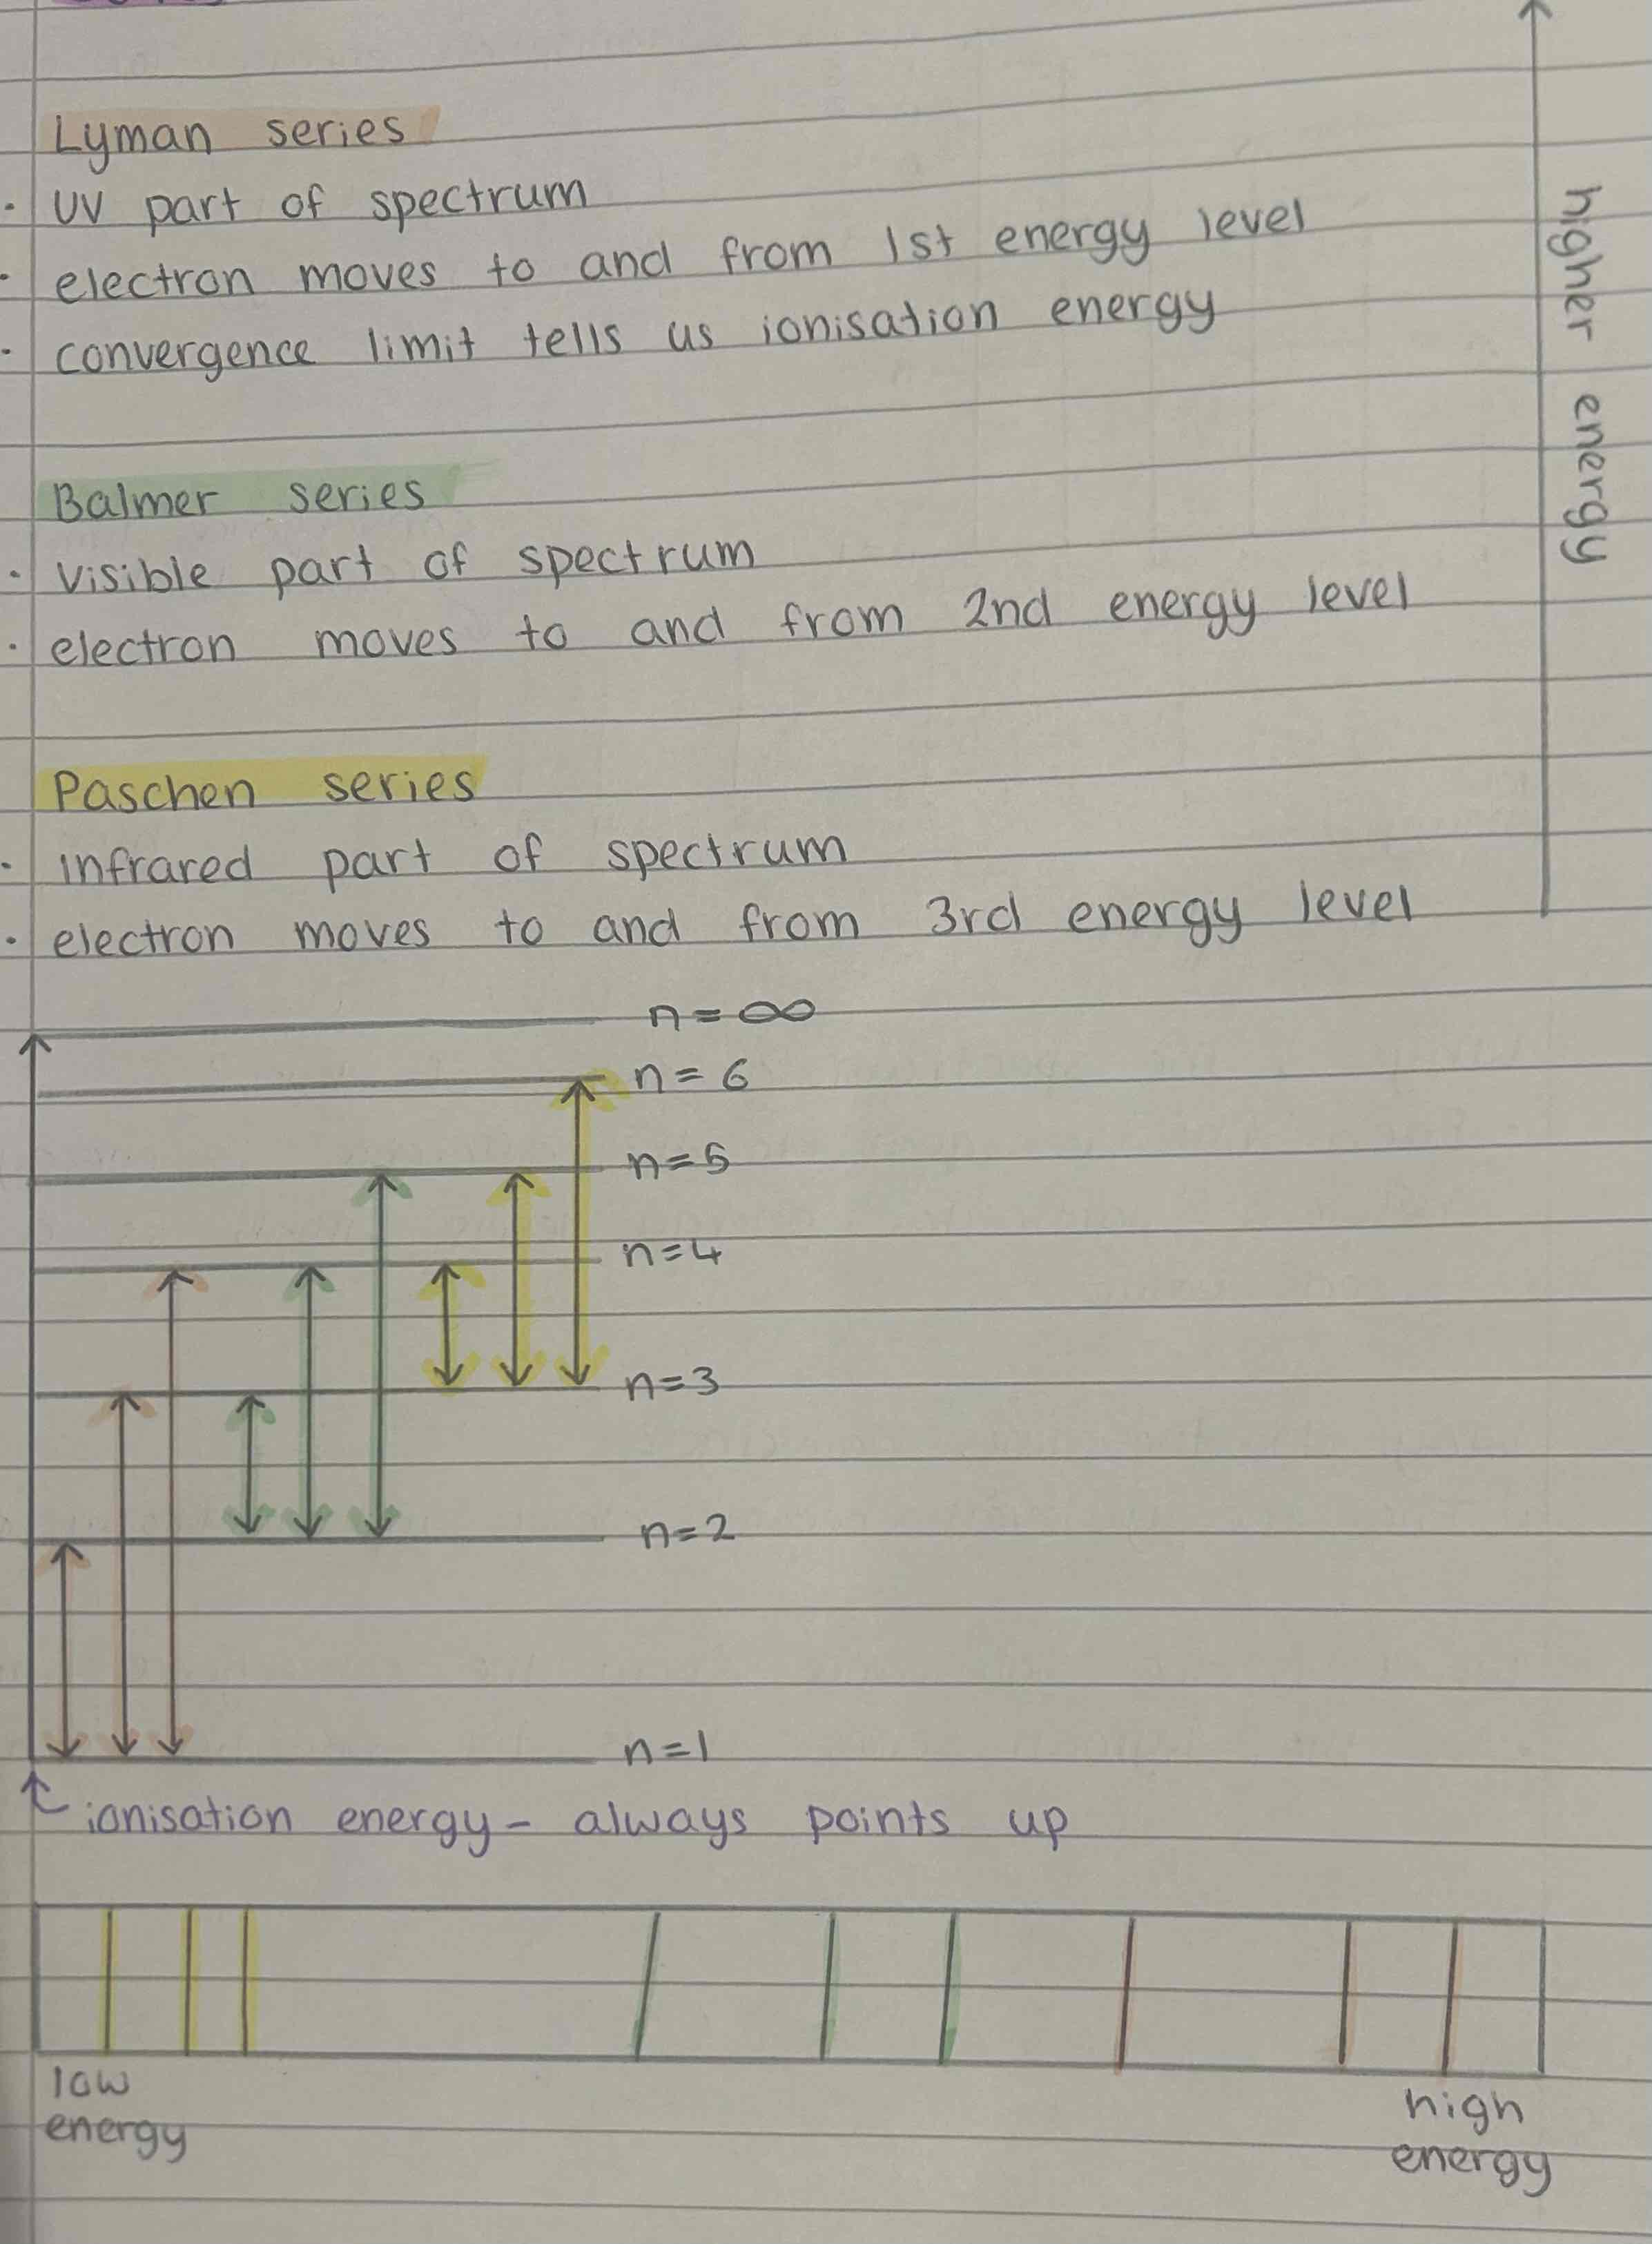 Lyman series
· UV part of spectrum
· electron moves to and from 1st energy level
· convergence limit tells us ionisation energy
higher energy
Balmer series
· visible part of spectrum
· electron moves to and from 2nd energy level
Paschen series
· infrared part of spectrum
· electron moves to and from 3rd energy level
n = ∞
n = 6
n = 5
n = 4
n = 3
n = 2
n = 1
ionisation energy - always points up
low
energy
high
energy